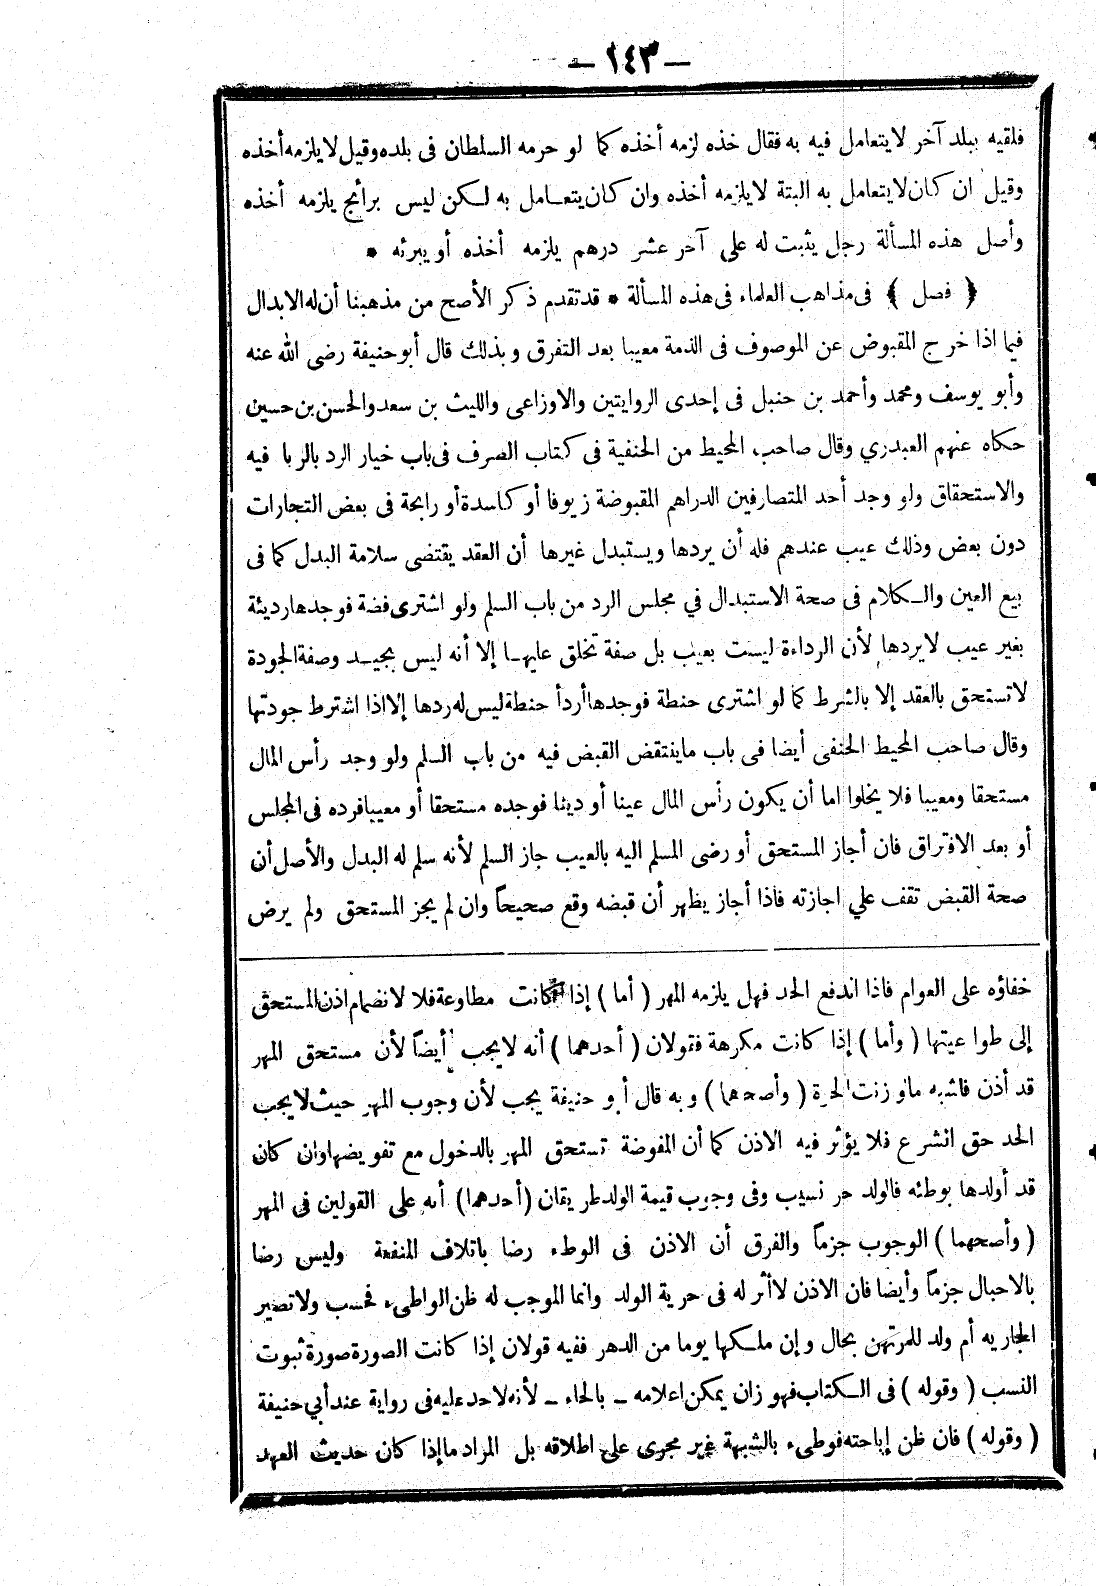 — ١٤٣ —
فلقيه ببلد آخر لا يتعامل فيه به فقال خذه لزمه أخذه كما لو حرمه السلطان فى بلده وقيل لا يلزمه أخذه
وقيل ان كان لا يتعامل به البتة لا يلزمه أخذه وان كان يتعــامل به لـكن ليس برائج يلزمه أخذه
وأصل هذه المسألة رجل يثبت له على آخر عشر درهم يلزمه أخذه أو يبرئه *
﴿ فصل ﴾ فى مذاهب العلماء فى هذه المسألة * قد تقدم ذكر الأصح من مذهبنا أن له الابدال
فيما اذا خرج المقبوض عن الموصوف فى الذمة معيبا بعد التفرق وبذلك قال أبو حنيفة رضى الله عنه
وأبو يوسف ومحمد وأحمد بن حنبل فى إحدى الروايتين والاوزاعى والليث بن سعد والحسن بن حسين
حكاه عنهم العبدري وقال صاحب المحيط من الحنفية فى كتاب الصرف فى باب خيار الرد بالربا فيه
والاستحقاق ولو وجد أحد المتصارفين الدراهم المقبوضة زيوفا أو كاسدة أو رابحة فى بعض التجارات
دون بعض وذلك عيب عندهم فله أن يردها ويستبدل غيرها أن العقد يقتضى سلامة البدل كما فى
بيع العين والـكلام فى صحة الاستبدال في مجلس الرد من باب السلم ولو اشترى فضة فوجدها رديئة
بغير عيب لا يردها لأن الرداءة ليست بعيب بل صفة تخلق عليهـا إلا أنه ليس بجيـد وصفة الجودة
لا تستحق بالعقد إلا بالشرط كما لو اشترى حنطة فوجدها أردأ حنطة ليس له ردها إلا اذا اشترط جودتها
وقال صاحب المحيط الحنفى أيضا فى باب ما ينتقض القبض فيه من باب السلم ولو وجد رأس المال
مستحقا ومعيبا فلا يخلوا اما أن يكون رأس المال عينا أو دينا فوجده مستحقا أو معيبا فرده فى المجلس
أو بعد الافتراق فان أجاز المستحق أو رضى المسلم اليه بالعيب جاز السلم لأنه سلم له البدل والأصل أن
صحة القبض تقف علي اجازته فاذا أجاز يظهر أن قبضه وقع صحيحاً وان لم يجز المستحق ولم يرض
خفاؤه على العوام فاذا اندفع الحد فهل يلزمه المهر ( أما ) إذا كانت مطاوعة فلا لانضمام اذن المستحق
إلى طوا عيتها ( وأما ) إذا كانت مكرهة فقولان ( أحدهما ) أنه لا يجب أيضاً لأن مستحق المهر
قد أذن فاشبه مالو زنت الحرة ( وأصحهما ) وبه قال أبو حنيفة يجب لأن وجوب المهر حيث لا يجب
الحد حق الشرع فلا يؤثر فيه الاذن كما أن المفوضة تستحق المهر بالدخول مع تفويضها وان كان
قد أولدها بوطئه فالولد حر نسيب وفى وجوب قيمة الولد طريقان ( أحدهما ) أنه على القولين فى المهر
( وأصحهما ) الوجوب جزماً والفرق أن الاذن فى الوطء رضا باتلاف المنفعة وليس رضا
بالاحبال جزماً وأيضا فان الاذن لا أثر له فى حرية الولد وانما الموجب له ظن الواطىء فحسب ولا تصير
الجاريه أم ولد للمرتهن بحال وإن ملـكها يوما من الدهر ففيه قولان إذا كانت الصورة صورة ثبوت
النسب ( وقوله ) فى الـكتاب فهو زان يمكن اعلامه – بالحاء – لأنه لا حد عليه فى رواية عند أبي حنيفة
( وقوله ) فان ظن إباحته فوطىء بالشبهة غير مجرى على اطلاقه بل المراد ما إذا كان حديث العهد